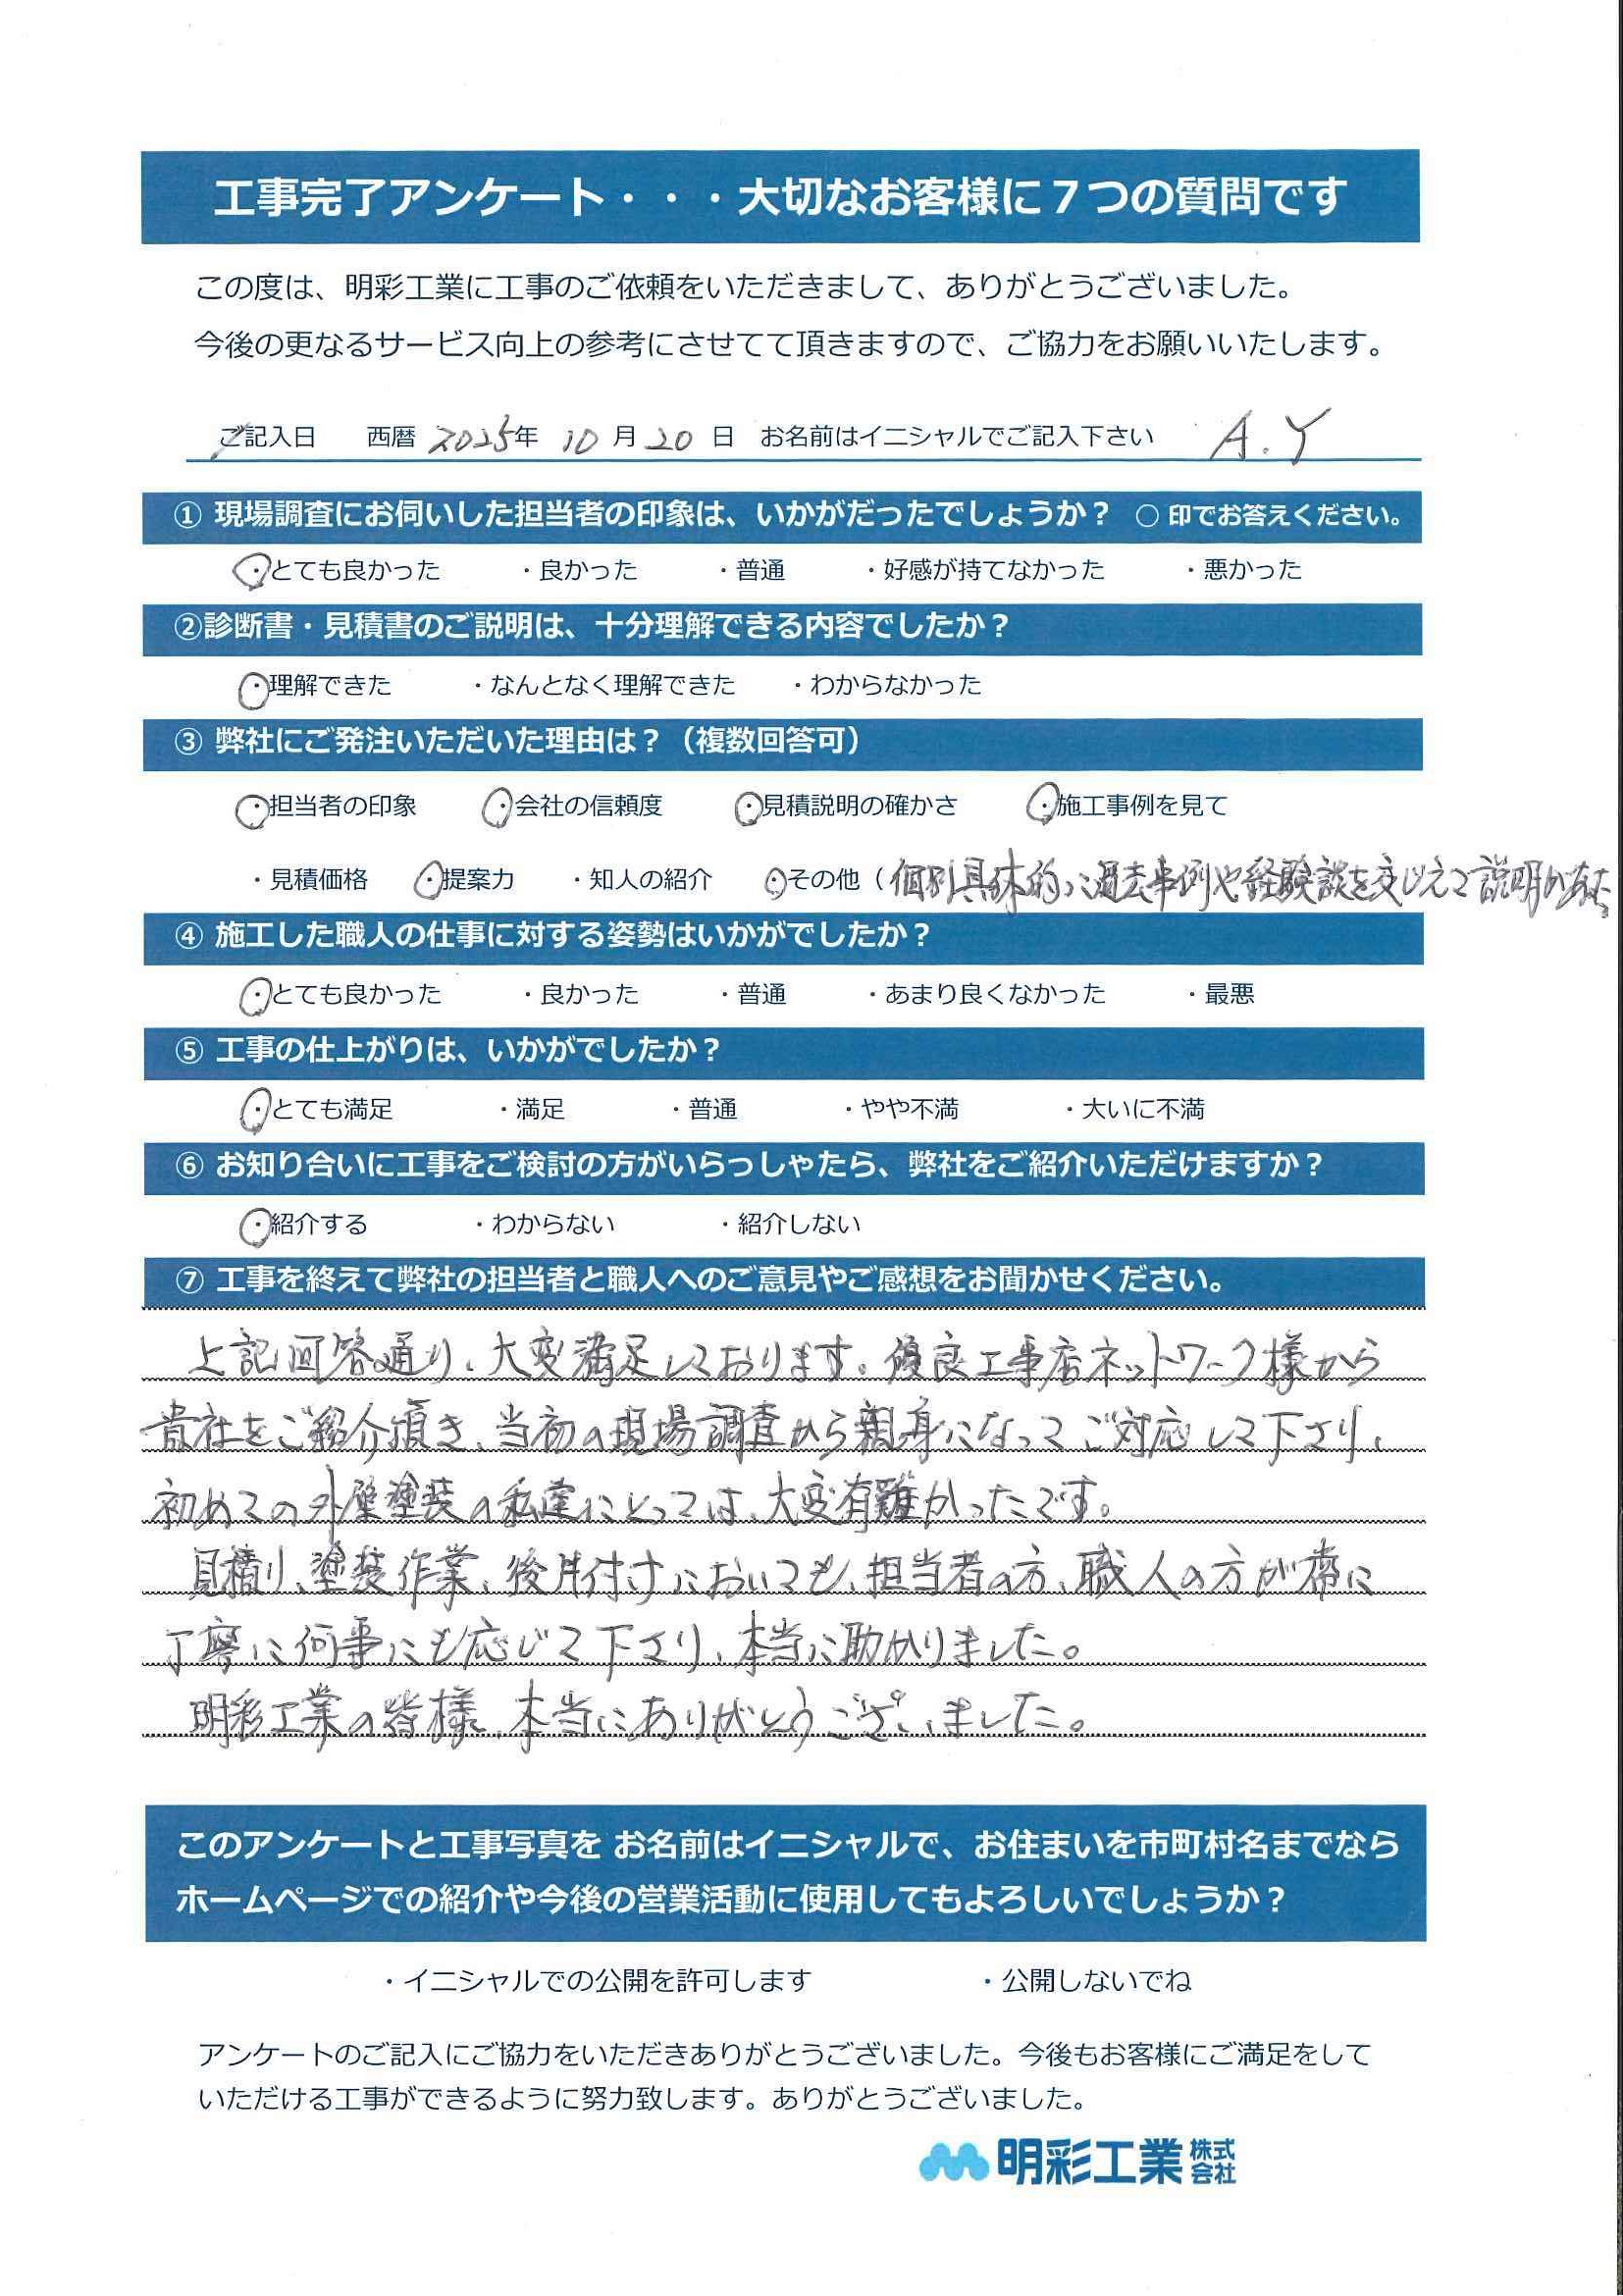 工事完了アンケート・・・大切なお客様に７つの質問です
この度は、明彩工業に工事のご依頼をいただきまして、ありがとうございました。
今後の更なるサービス向上の参考にさせてて頂きますので、ご協力をお願いいたします。
ご記入日 西暦 2025年 10 月 20 日 お名前はイニシャルでご記入下さい A.Y
① 現場調査にお伺いした担当者の印象は、いかがだったでしょうか？ ○ 印でお答えください。
・とても良かった ・良かった ・普通 ・好感が持てなかった ・悪かった
②診断書・見積書のご説明は、十分理解できる内容でしたか？
・理解できた ・なんとなく理解できた ・わからなかった
③ 弊社にご発注いただいた理由は？（複数回答可）
・担当者の印象 ・会社の信頼度 ・見積説明の確かさ ・施工事例を見て
・見積価格 ・提案力 ・知人の紹介 ・その他（個別具体的に過去事例や経験談を交じえて説明があった
④ 施工した職人の仕事に対する姿勢はいかがでしたか？
・とても良かった ・良かった ・普通 ・あまり良くなかった ・最悪
⑤ 工事の仕上がりは、いかがでしたか？
・とても満足 ・満足 ・普通 ・やや不満 ・大いに不満
⑥ お知り合いに工事をご検討の方がいらっしゃたら、弊社をご紹介いただけますか？
・紹介する ・わからない ・紹介しない
⑦ 工事を終えて弊社の担当者と職人へのご意見やご感想をお聞かせください。
上記回答通り、大変満足しております。優良工事店ネットワーク様から
貴社をご紹介頂き、当初の現場調査から親身になってご対応して下さり、
初めての外壁塗装の私達にとっては、大変有難かったです。
見積り、塗装作業、後片付けにおいても、担当者の方、職人の方が常に
丁寧に何事にも応じて下さり、本当に助かりました。
明彩工業の皆様、本当にありがとうございました。
このアンケートと工事写真を お名前はイニシャルで、お住まいを市町村名までなら
ホームページでの紹介や今後の営業活動に使用してもよろしいでしょうか？
・イニシャルでの公開を許可します ・公開しないでね
アンケートのご記入にご協力をいただきありがとうございました。今後もお客様にご満足をして
いただける工事ができるように努力致します。ありがとうございました。
明彩工業株式会社